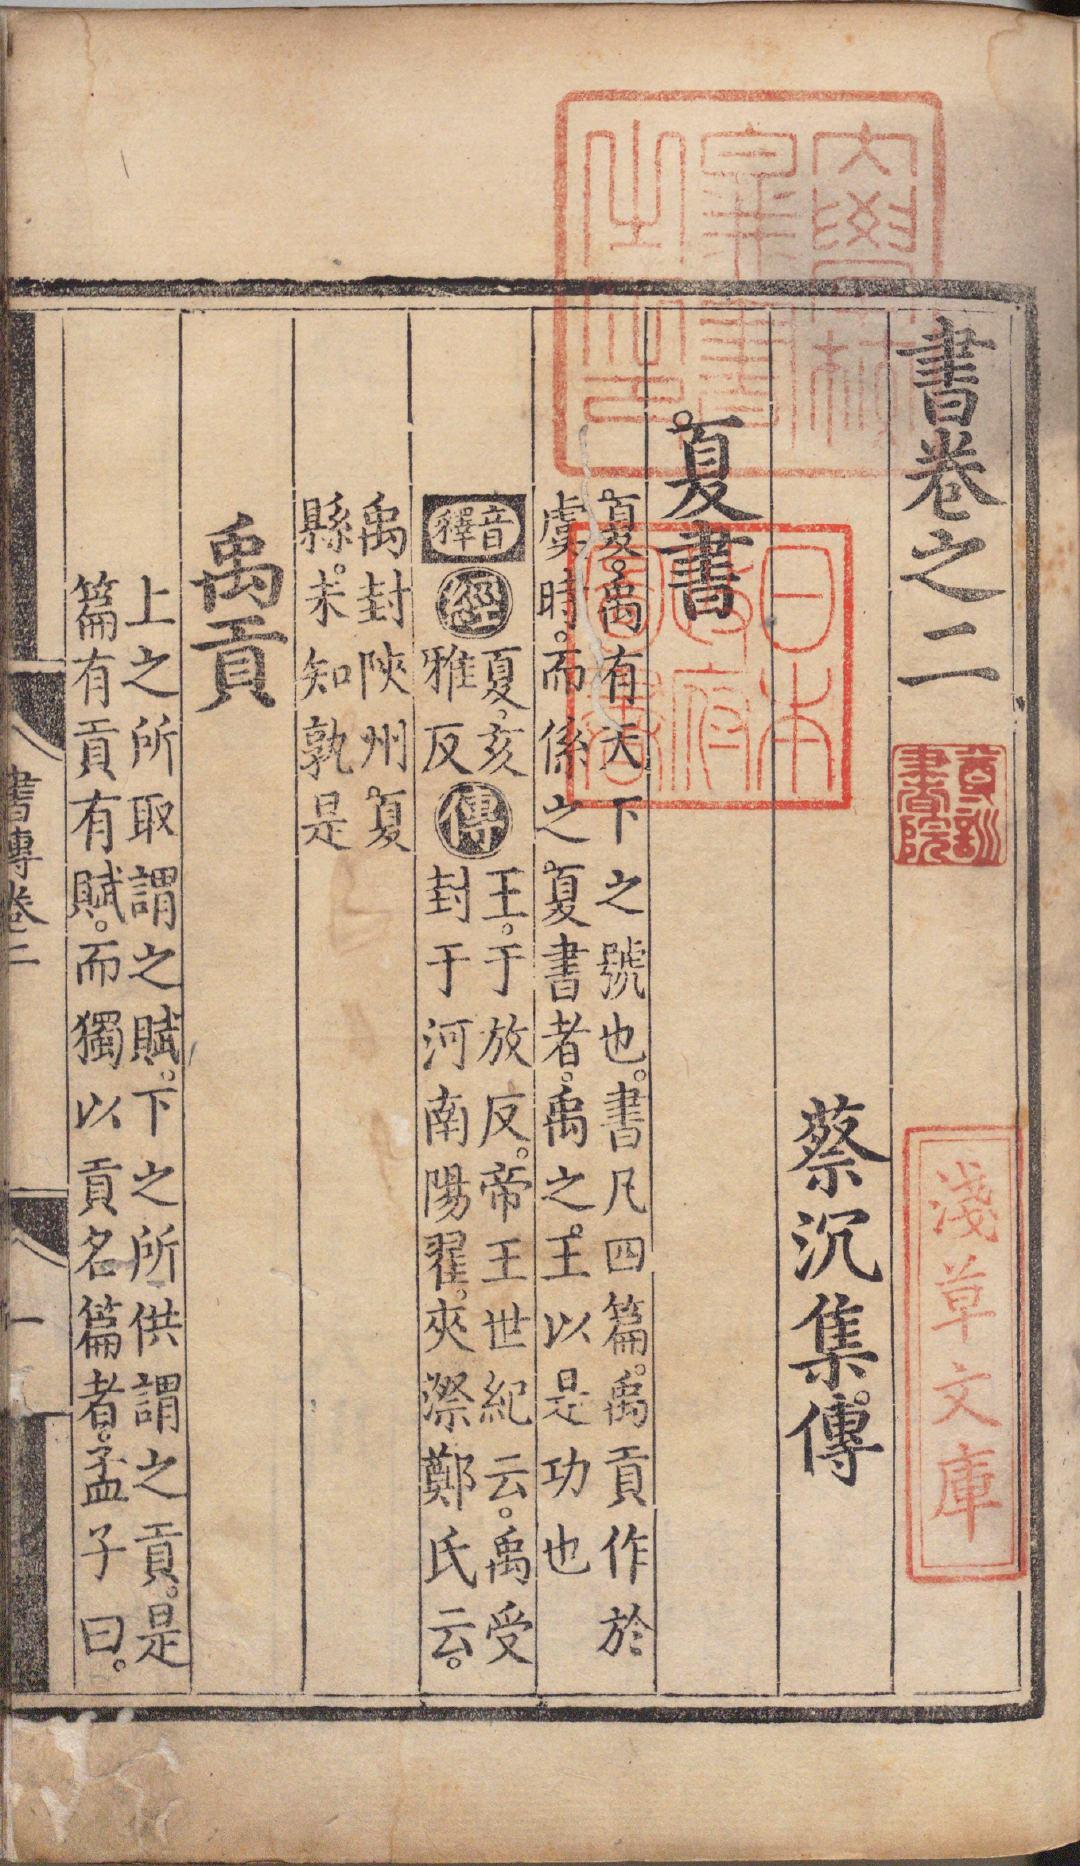 書卷之二
蔡沉集傳
夏書
夏。禹有天下之號也。書凡四篇。禹貢作於
虞時。而係之夏書者。禹之王以是功也
音釋 經 夏。亥雅反 傳 王。于放反。帝王世紀云。禹受
封于河南陽翟。夾漈鄭氏云。
禹封陝州夏
縣。未知孰是
禹貢
上之所取謂之賦。下之所供謂之貢。是
篇有貢有賦。而獨以貢名篇者。孟子曰。
書傳卷二
一
大學頭林
氏藏書
之印
日本
政府
圖書
尊訓
書院
淺草文庫